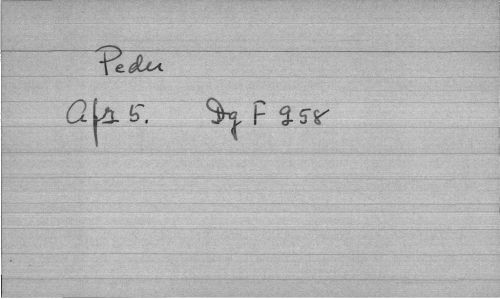 Peder
Afr 5. Dg F 258